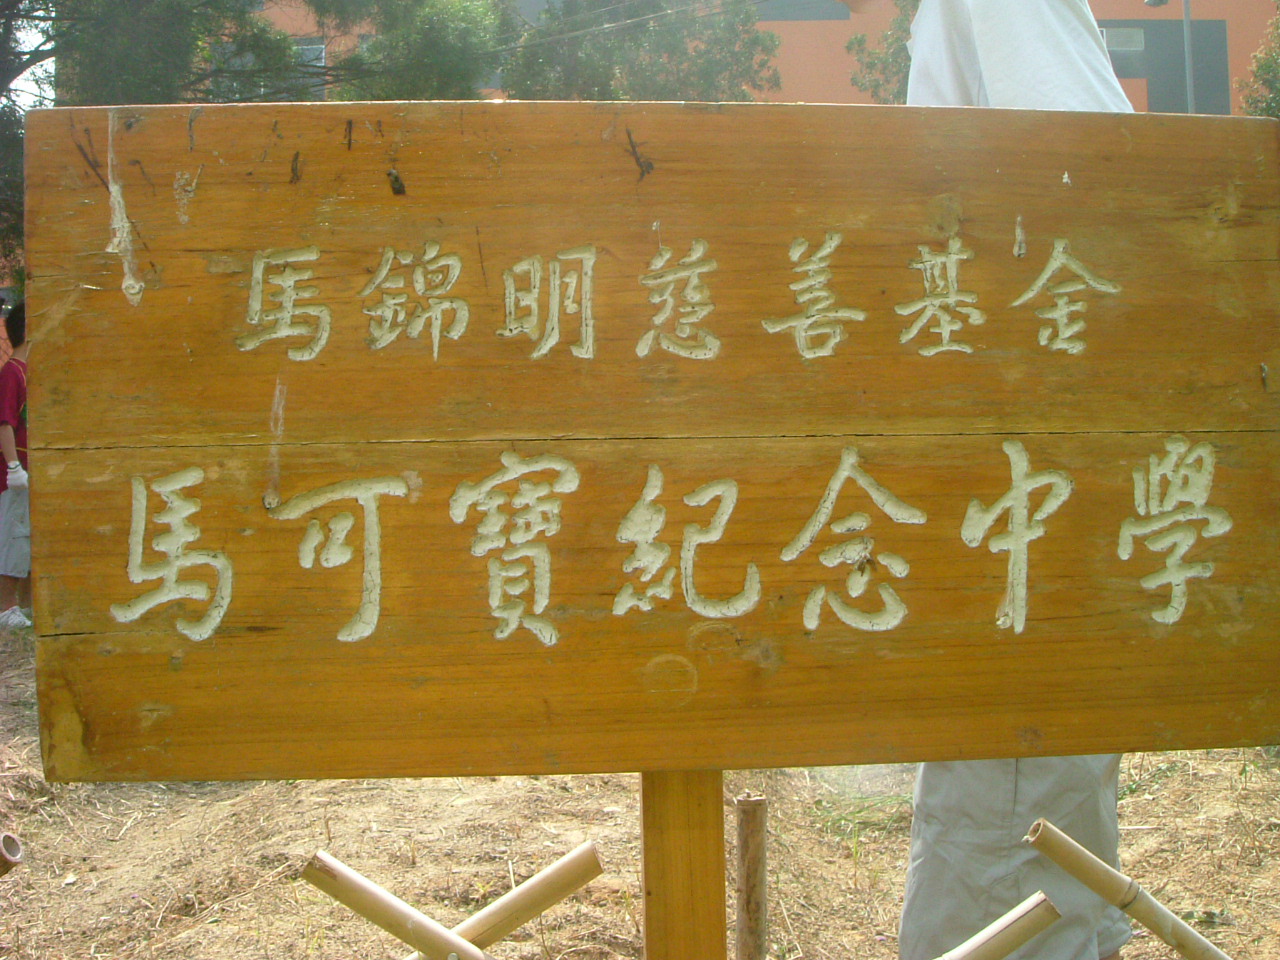 馬錦明慈善基金
馬可賓紀念中學